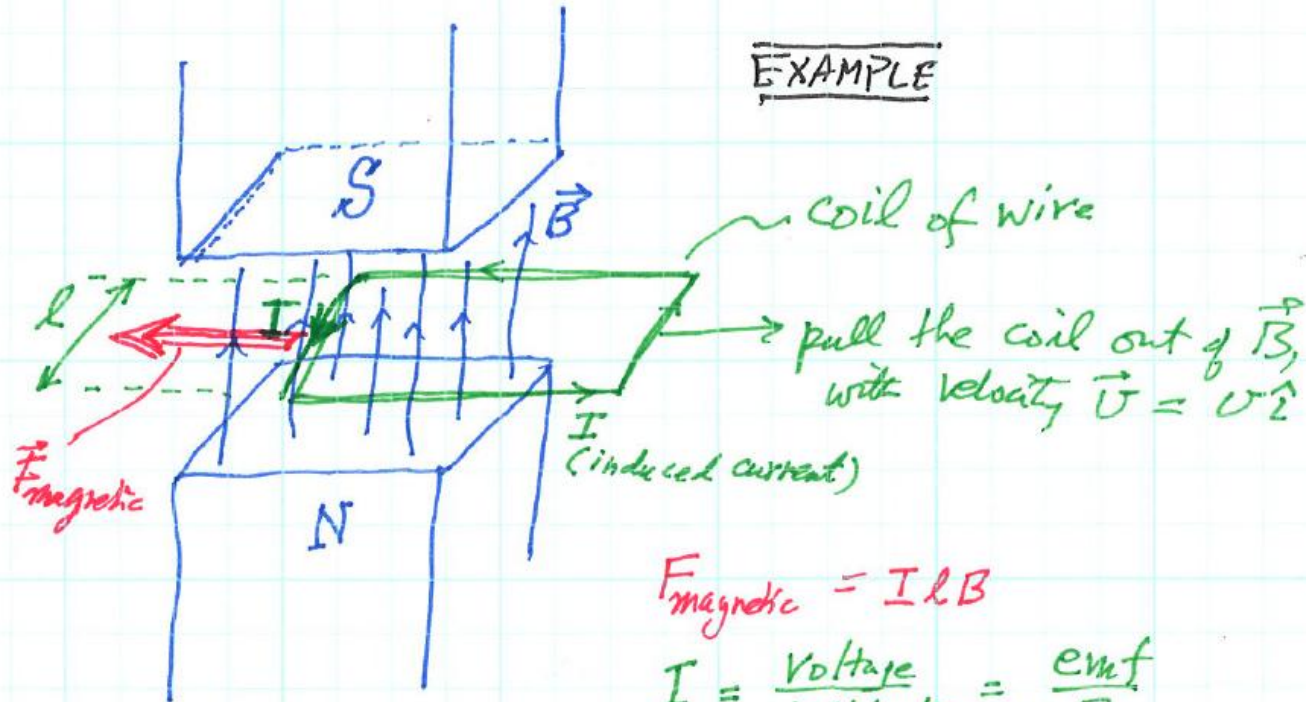 EXAMPLE
S
B⃗
coil of wire
l
I
pull the coil out of B⃗,
with velocity v⃗ = v î
I
(induced current)
F⃗magnetic
N
Fmagnetic = I l B
I = voltage = emf